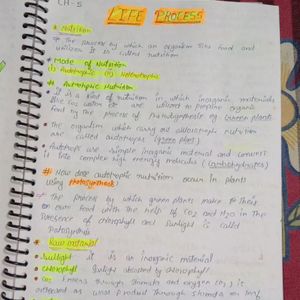 CH-5
LIFE PROCESS
* Nutrition
The process by which an organism take food and
utilize it is called nutrition
* Mode of Nutrition
(i) Autotrophic (ii) Heterotrophic
Autotrophic Nutrition
It is a kind of nutrition in which inorganic materials
like CO2 water etc are utilized to prepare organic
food by the process of photosynthesis eg (green plants)
• The organism which carry out autotrophic nutrition
are called autotrophs (green plant)
• Autotrophs are simple inorganic material and convert
it into complex high energy molecules (carbohydrates)
# How does autotrophic nutrition occur in plants
using photosynthesis
The process by which green plants make their
own food with the help of CO2 and H2O in the
presence of chlorophyll and sunlight is called
* Raw material
• Sunlight it is an inorganic material
• Chlorophyll Sunlight absorbed by chlorophyll
• CO2 enters through stomata and oxygen (O2) is
released as product through stomata on leaf